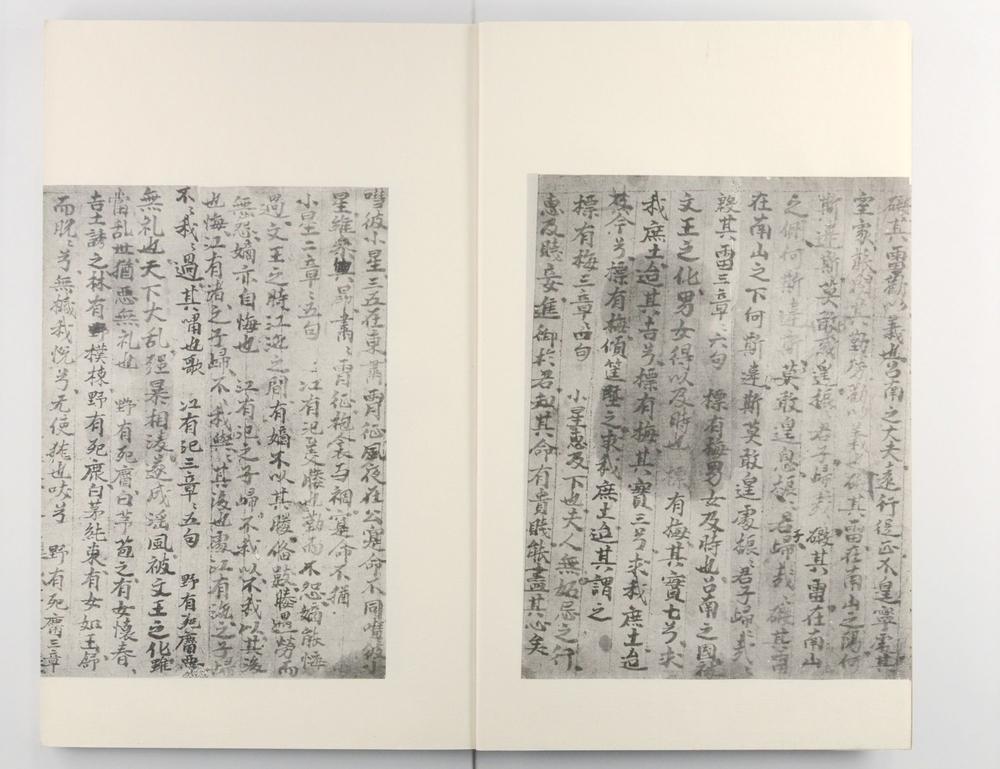 礒其雷勸以義也召南之大夫遠行從正不遑寧處其
室家能閔其勤勞勸以義也 礒其雷在南山之陽何
斯違斯莫敢或遑振〻君子歸哉〻 礒其雷在南山
之側何斯違斯莫敢遑息振〻君子歸哉〻 礒其雷
在南山之下何斯違斯莫敢遑處振〻君子歸哉〻
礒其雷三章〻六句 摽有梅男女及時也召南之國被
文王之化男女得以及時也 摽有梅其實七兮求
我庶士迨其吉兮摽有梅其實三兮求我庶士迨
其今兮摽有梅傾筐塈之求我庶士迨其謂之
摽有梅三章〻四句 小星惠及下也夫人無妬忌之行
惠及賤妾進御於君知其命有貴賤能盡其心矣
嘒彼小星三五在東肅〻宵征夙夜在公寔命不同嘒彼小
星維參與昴肅〻宵征抱衾与裯寔命不猶
小星二章〻五句 江有汜美媵也勤而不怨嫡能悔
過文王之時江沱之間有嫡不以其媵俻數媵遇勞而
無怨嫡亦自悔也 江有汜之子歸不我以不我以其後
也悔江有渚之子歸不我與〻其後也處江有沱之子歸
不〻我〻過其嘯也歌 江有汜三章〻五句 野有死麕惡
無礼也天下大乱强暴相淩遂成滛風被文王之化雖
當乱世猶惡無礼也 野有死麕白茅苞之有女懷春
吉士誘之林有樸樕野有死鹿白茅純束有女如玉舒
而脫〻兮無撼我帨兮无使尨也吠兮 野有死麕三章